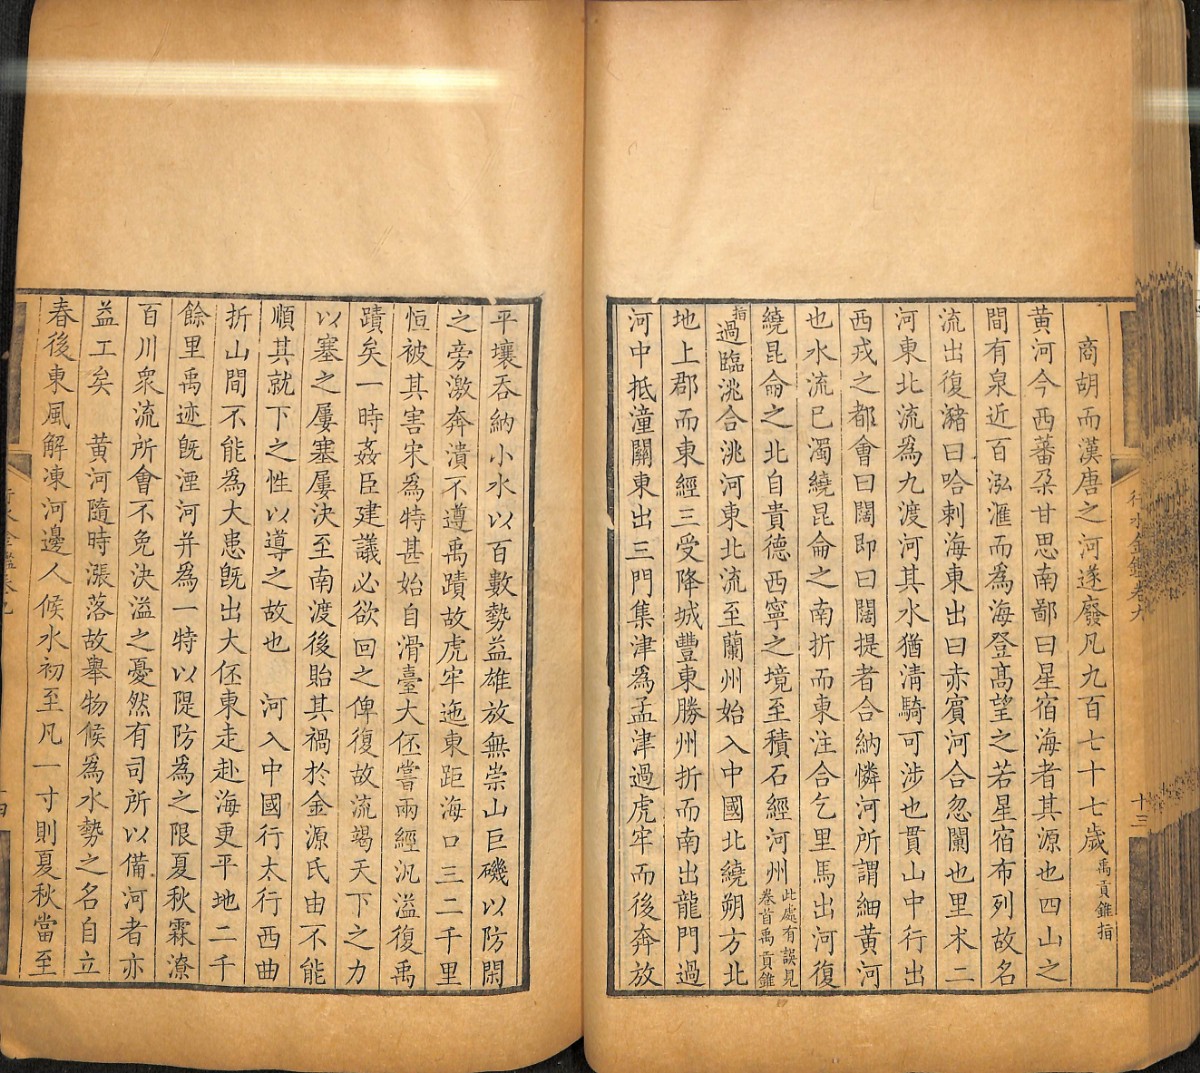 商胡而漢唐之河遂廢凡九百七十七歲禹貢錐指
黃河今西蕃朶甘思南鄙曰星宿海者其源也四山之
間有泉近百泓滙而爲海登髙望之若星宿布列故名
流出復瀦曰哈剌海東出曰赤賓河合忽闌也里术二
河東北流爲九渡河其水猶清騎可涉也貫山中行出
西戎之都會曰闊即曰闊提者合納憐河所謂細黃河
也水流已濁繞昆侖之南折而東注合乞里馬出河復
繞昆侖之北自貴德西寧之境至積石經河州此處有誤見卷首禹貢錐
指過臨洮合洮河東北流至蘭州始入中國北繞朔方北
地上郡而東經三受降城豐東勝州折而南出龍門過
河中抵潼關東出三門集津爲孟津過虎牢而後奔放
行水金鑑卷九
十三
平壤吞納小水以百數勢益雄放無崇山巨磯以防閑
之旁激奔潰不遵禹蹟故虎牢迤東距海口三二千里
恒被其害宋爲特甚始自滑臺大伾嘗兩經汎溢復禹
蹟矣一時姦臣建議必欲回之俾復故流竭天下之力
以塞之屢塞屢決至南渡後貽其禍於金源氏由不能
順其就下之性以導之故也　河入中國行太行西曲
折山間不能爲大患旣出大伾東走赴海更平地二千
餘里禹迹旣湮河并爲一特以隄防為之限夏秋霖潦
百川衆流所會不免決溢之憂然有司所以備河者亦
益工矣　黃河隨時漲落故舉物候為水勢之名自立
春後東風解凍河邊人候水初至凡一寸則夏秋當至